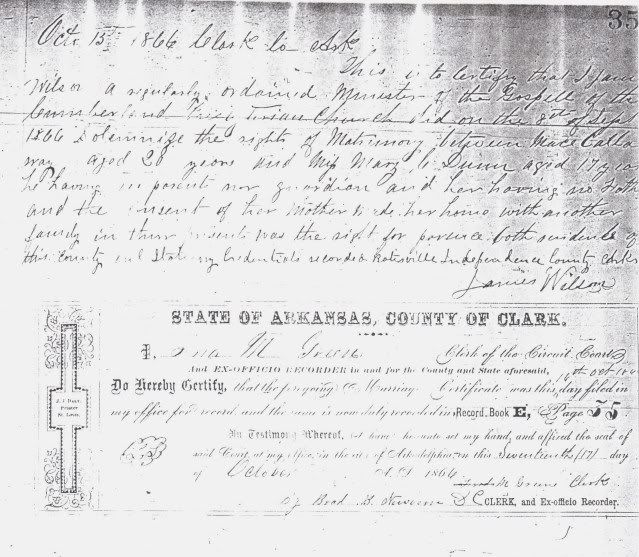 35
Octo 15th 1866 Clark Co Ark
This is to Certify that I James
Wilson a regularly ordained Minister of the Gospell of the
Cumberland Church did on the 8th of Sept
1866 Solemnize the rights of Matrimony between Mace Calla
way aged 20 years and Mary Dunn aged 17 years
he having no parents nor guardian and her having no Father
and the consent of her Mother her home with another
family in was the right for both residents of
this County and State my Credentials recorded Batesville Independence County Arks
James Wilson
STATE OF ARKANSAS, COUNTY OF CLARK.
I, M Green Clerk of the Circuit Court
And EX-OFFICIO RECORDER in and for the County and State aforesaid,
Do Hereby Certify, that the foregoing Marriage Certificate was this day filed in
my office for record, and the same is now duly recorded in Record Book E, Page 35
In Testimony Whereof, I have hereunto set my hand, and affixed the seal of
said Court, at my office, in the city of Arkadelphia, on this Seventeenth (17) day
of October A. D. 1866
M Green Clerk
By CLERK, and Ex-officio Recorder.
Printer
St. Louis.